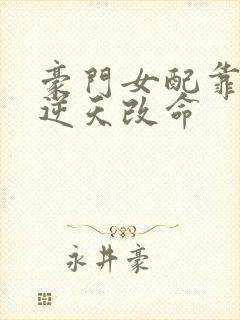 豪門女配靠
逆天改命
永井豪